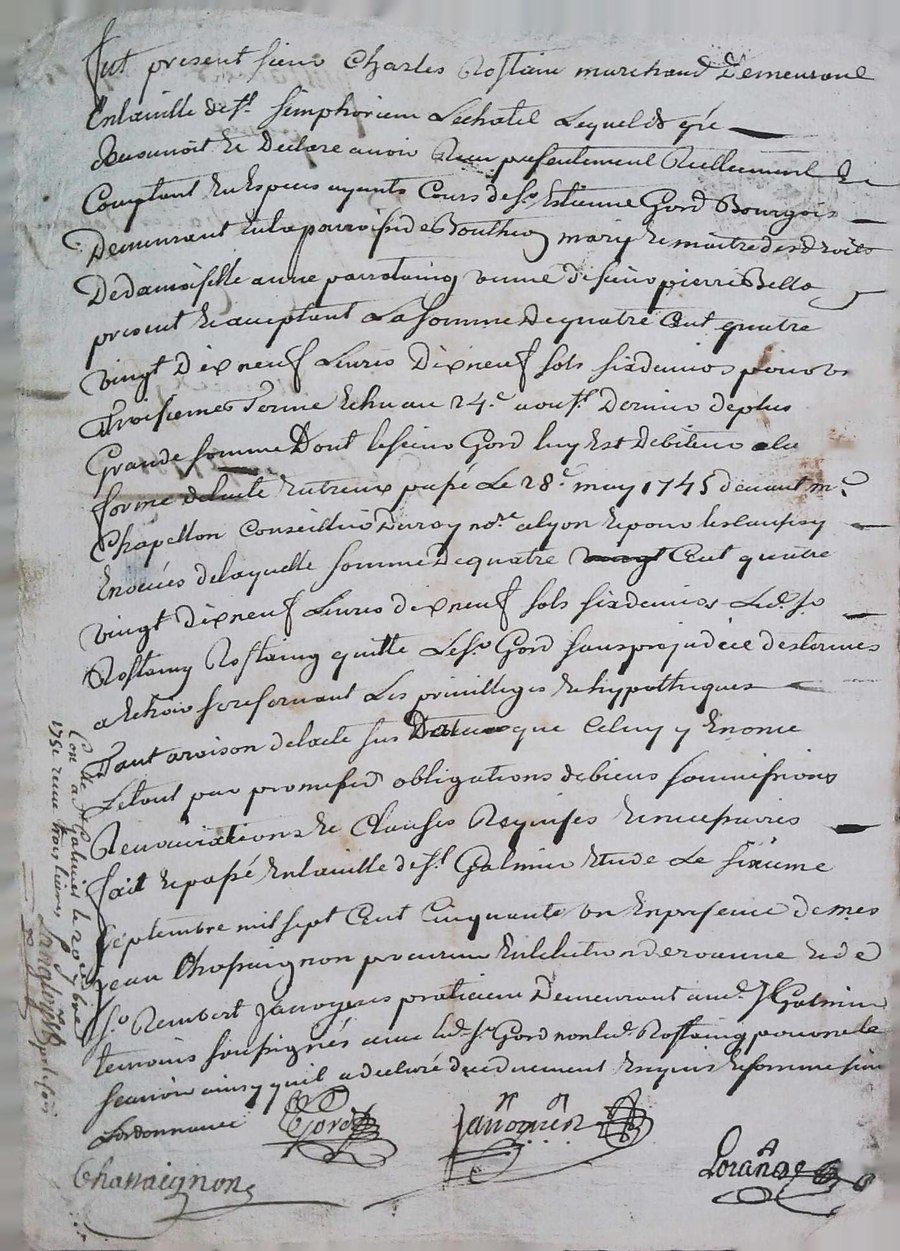 fut present sieur Charles Rostain marchand demeurant
En la ville de st simphorien Lechatel Lequel de gré
Reconnoit Et Declare avoir Reçu presentement Reellement Et
Comptant En Especes ayants Cours de sr Estienne Gord Bourgois
Demeurant En la parroisse de Bouthéon mary Et maitre des droits
De damoiselle anne parrotaing veuve de sieur pierre
present Et acceptant La somme De quatre Cent quatre
vingt Dix neuf Livres Dix neuf sols six deniers pour
troisieme Terme Echu au 24e aoust Dernier de plus
Grande somme Dont le sieur Gord luy Est Debiteur a la
forme de lacte Entreux passé Le 28e may 1745 devant me
Chapellon Conseiller Du roy nore a lyon Et pour les causes y
Enoncées de laquelle somme De quatre vingt Cent quatre
vingt dix neuf Livres dix neuf sols six deniers Led. sr
Rostaing Rostaing quitte Le sr Gord sans prejudice des termes
a Echoir se reservant Les privilleges Et hypotheques
Tant a raison de lacte sus Datte que Celuy y Enoncé
Le tout par promesses obligations de biens soumissions
Renonciations Et Clauses Requises Et necessaires
fait Et passé En la ville de st Galmier Etude Le sixieme
septembre mil sept Cent Cinquante un En presence de mes
Jean Chassaignon procureur En lelection de roanne Et de
sr Rembert Janoyer praticien Demeurant aud. st Galmier
temoins soussignés avec led. sr Gord non led. Rostaing pour ne le
scavoir ainsy quil a declaré de ce duement Enquis Et sommé suivt
Lordonnance
Gord
Janoyer
Chassaignon
Con lle a st Galmier le 20 7bre
1751 reçu trois livres